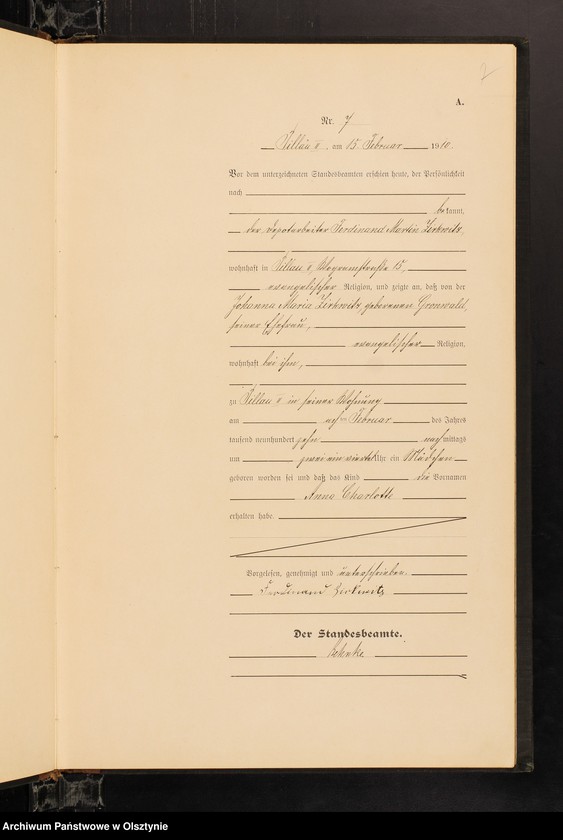 A.
Nr. 7
Pillau II, am 15. Februar 1910.
Vor dem unterzeichneten Standesbeamten erschien heute, der Persönlichkeit
nach
bekannt,
der Depotarbeiter Ferdinand Martin Zirkwitz,
wohnhaft in Pillau II, 15,
evangelischer Religion, und zeigte an, daß von der
Johanna Maria Zirkwitz, geborenen Gronwald,
seiner Ehefrau,
evangelischer Religion,
wohnhaft bei ihm,
zu Pillau II in seiner Wohnung
am Februar des Jahres
tausend neunhundert zehn nachmittags
um zwei ein viertel Uhr ein Mädchen
geboren worden sei und daß das Kind die Vornamen
Anna Charlotte
erhalten habe.
Vorgelesen, genehmigt und unterschrieben.
Ferdinand Zirkwitz
Der Standesbeamte.
Archiwum Państwowe w Olsztynie